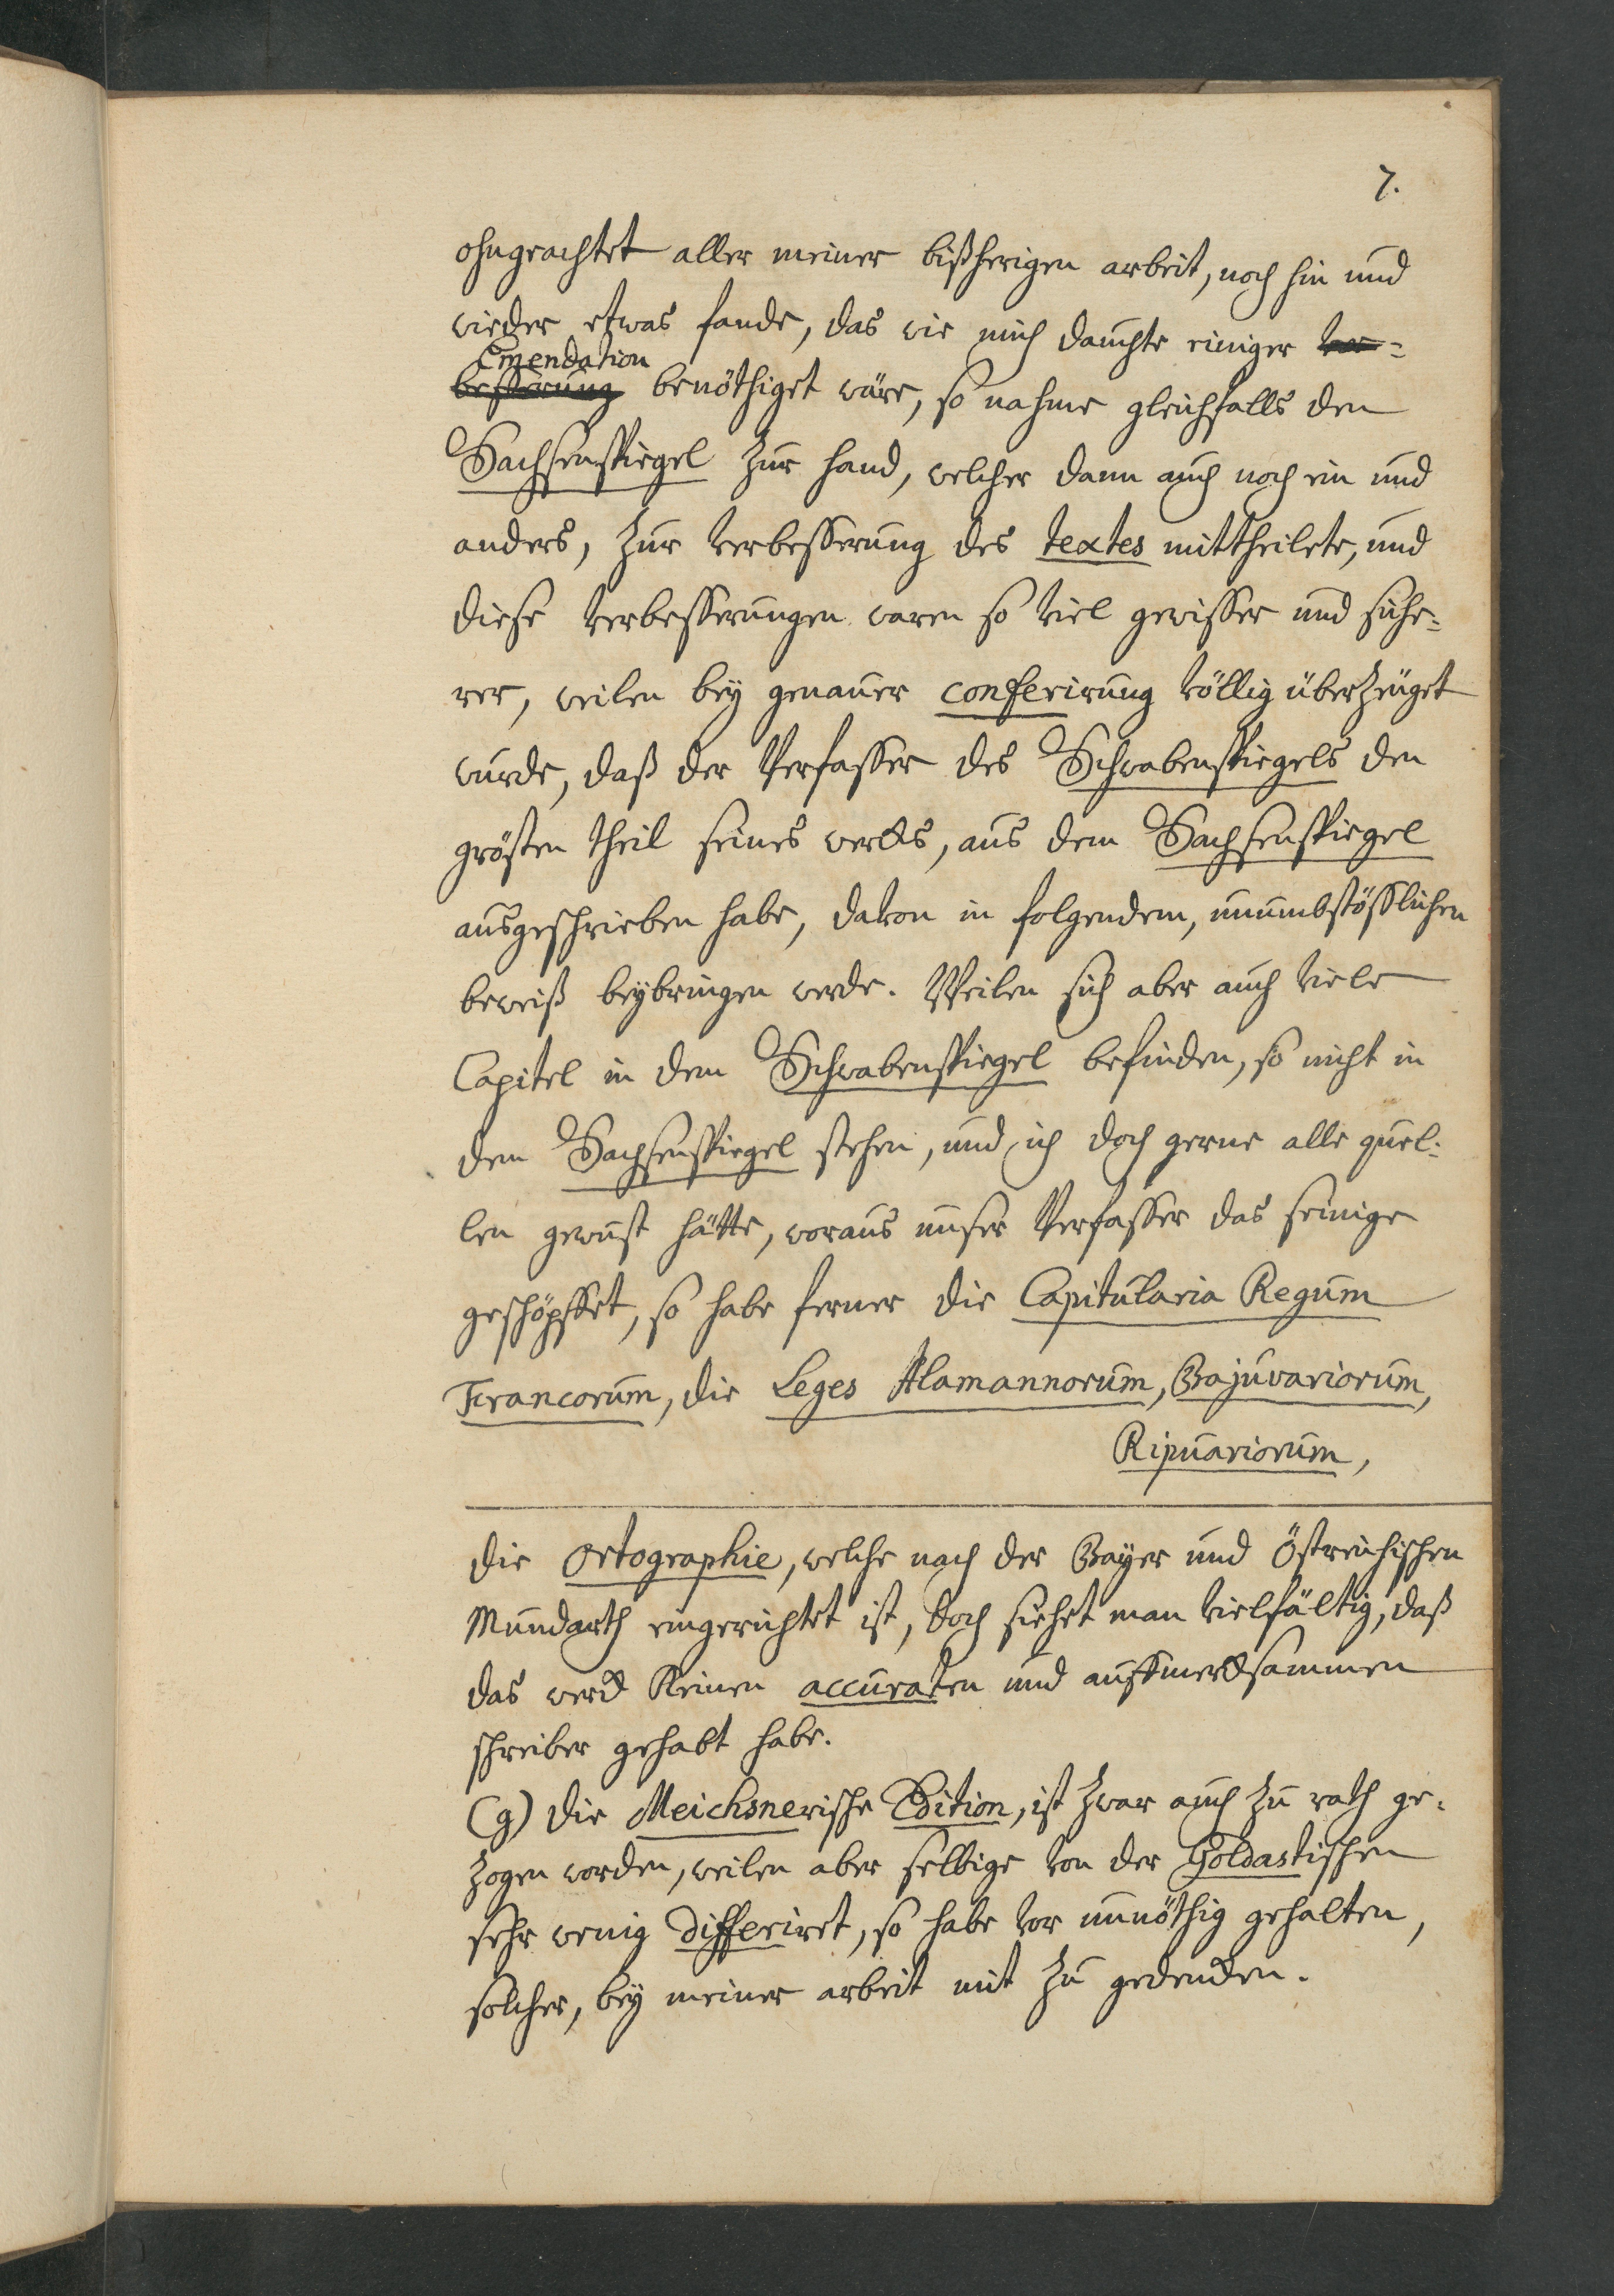 7.
ohngeachtet aller meiner bißherigen arbeit, noch hin und
wieder etwas fande, das wie mich dauchte einiger ver-
Emendation
besserung benöthiget wäre, so nahme gleichfalls den
Sachsenspiegel zur hand, welcher dann auch noch ein und
anders, zur verbesserung des textes mittheilete, und
diese verbesserungen waren so viel gewisser und siche-
rer, weilen bey genauer conferirung völlig überzeuget
wurde, daß der Verfasser des Schwabenspiegels den
grösten theil seines wercks, aus dem Sachsenspiegel
ausgeschrieben habe, davon in folgendem, unumbstösslichen
beweiß beybringen werde. Weilen sich aber auch viele
Capitel in dem Schwabenspiegel befinden, so nicht in
dem Sachsenspiegel stehen, und ich doch gerne alle quel-
len gewust hätte, woraus unser Verfasser das seinige
geschöpffet, so habe ferner die Capitularia Regum
Francorum, die Leges Alamannorum, Bajuvariorum,
Ripuariorum,
die Ortographie, welche nach der Bayer und Östreichischen
Mundarth eingerichtet ist, doch siehet man vielfältig, daß
das werck keinen accuraten und auffmercksammen
schreiber gehabt habe.
(g) die Meichsnerische Edition, ist zwar auch zu rath ge-
zogen worden, weilen aber selbige von der Goldastischen
sehr wenig differiret, so habe vor unnöthig gehalten,
solcher, bey meiner arbeit mit zu gedencken.